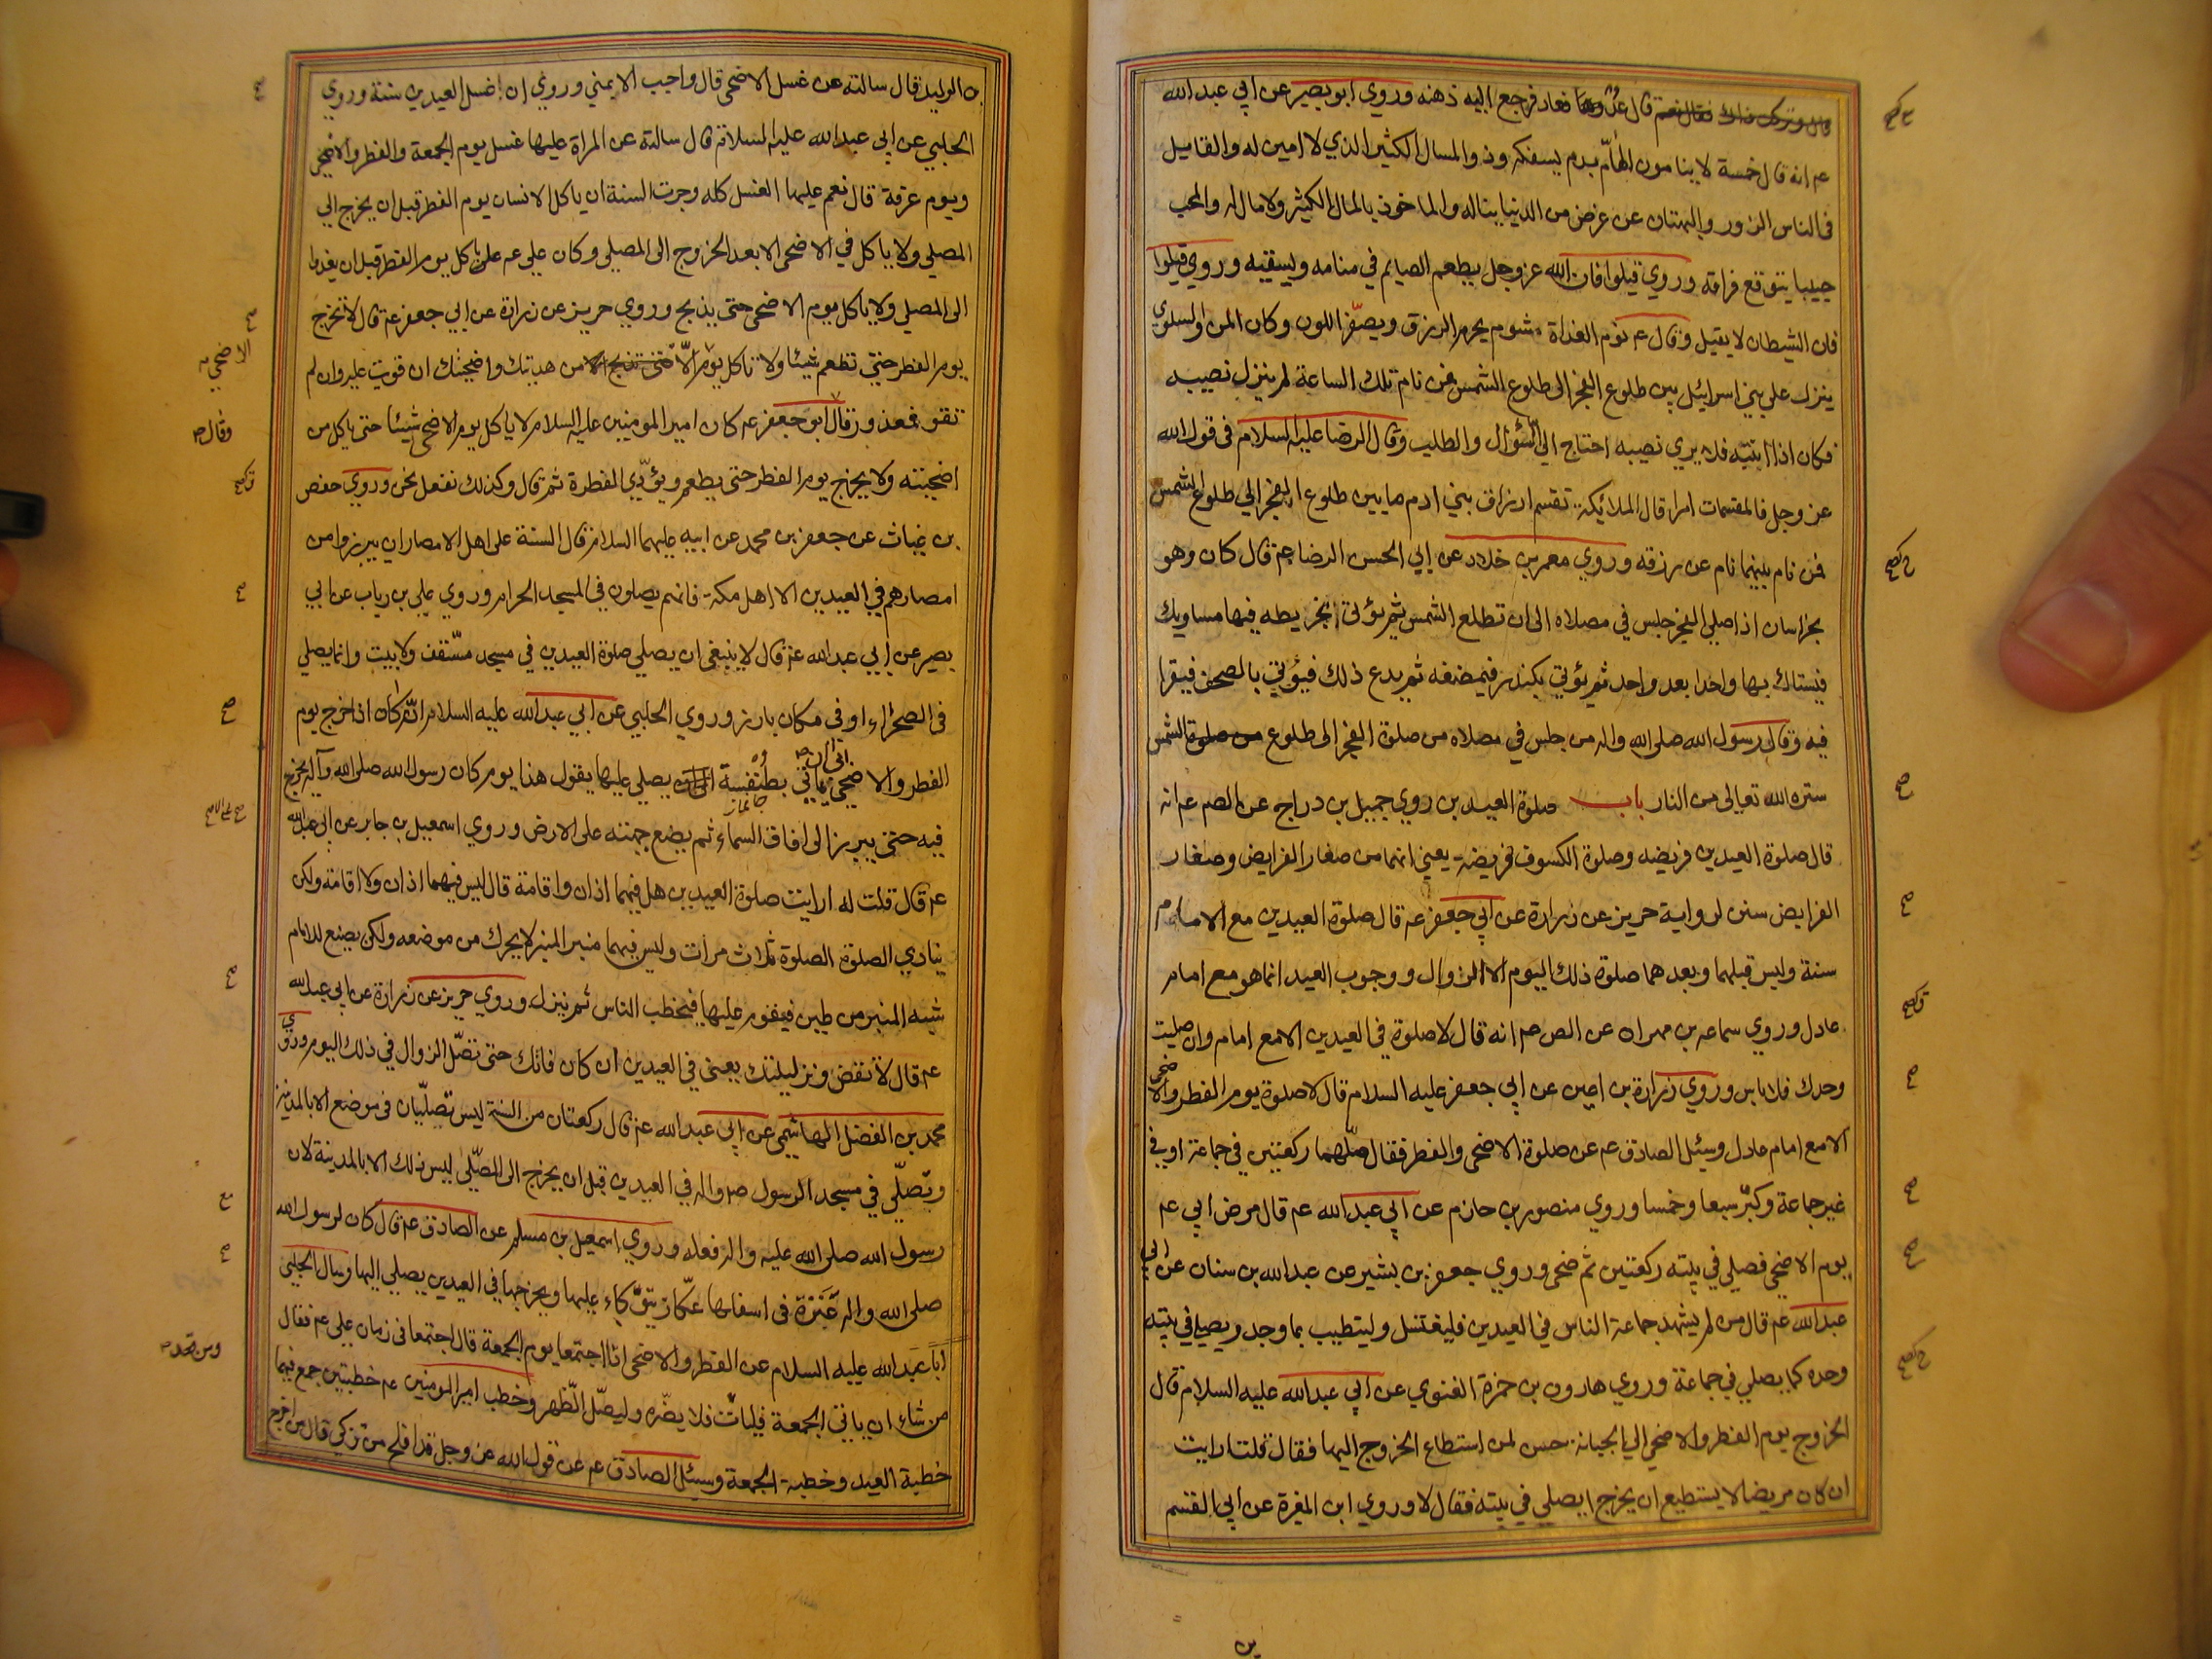 قال عد وها فعاد فرجع اليه ذهنه وروي ابو بصير عن ابي عبد الله
عم انه قال خمسة لا ينامون الهامّ بدم يسفكه وذو المال الكثير الذي لا امين له والقايل
في الناس الزور والبهتان عن عرض من الدنيا يناله والماخوذ بالمال الكثير ولا مال له والمحب
حبيبا يتوقع فراقه وروي قيلوا فان الله عز وجل يطعم الصايم في منامه ويسقيه وروي قيلوا
فان الشيطان لا يقيل وقال عم نوم الغداة مشوم يحرم الرزق ويصفّر اللون وكان المن والسلوي
ينزل علي بني اسرائيل بين طلوع الفجر الى طلوع الشمس فمن نام تلك الساعة لم ينزل نصيبه
فكان اذا انتبه فلا يري نصيبه احتاج الي السؤال والطلب وقال الرضا عليه السلام في قول الله
عز وجل فالمقسمات امرا قال الملائيكة تقسم ارزاق بني ادم ما بين طلوع الفجر الي طلوع الشمس
فمن نام بينهما نام عن رزقه وروي معمر بن خلاد عن ابي الحسن الرضا عم قال كان وهو
بخراسان اذا صلي الفجر جلس في مصلاه الى ان تطلع الشمس ثم يؤتى بخريطه فيها مساويك
فيستاك بها واحدا بعد واحد ثم يؤتي بكندر فيمضغه ثم يدع ذلك فيؤتي بالمصحف فيقرا
فيه وقال رسول الله صلى الله واله من جلس في مصلاه من صلوة الفجر الى طلوع من صلوة الشمس
ستره الله تعالى من النار باب صلوة العيدين روي جميل بن دراج عن الصم عم انه
قال صلوة العيدين فريضه وصلوة الكسوف فريضة يعني انهما من صغار الفرايض وصغار
الفرايض سنن لرواية حريز عن زرارة عن ابي جعفر عم قال صلوة العيدين مع الامام
سنة وليس قبلهما وبعدهما صلوة ذلك اليوم الا الزوال ووجوب العيد انما هو مع امام
عادل وروي سماعه بن مهران عن الص عم انه قال لا صلوة في العيدين الا مع امام وان صليت
وحدك فلا باس وروي زرارة بن اعين عن ابي جعفر عليه السلام قال لا صلوة يوم الفطر والاضحى
الا مع امام عادل وسئل الصادق عم عن صلوة الاضحى والفطر فقال صلّهما ركعتين في جماعة او في
غير جماعة وكبّر سبعا وخمسا وروي منصور بن حازم عن ابي عبد الله عم قال مرض ابي عم
يوم الاضحى فصلي في بيته ركعتين ثم ضحى وروي جعفر بن بشير عن عبد الله بن سنان عن ابي
عبد الله عم قال من لم يشهد جماعة الناس في العيدين فليغتسل وليتطيب بما وجد ويصلي في بيته
وحده كما يصلي في جماعة وروي هارون بن حمزة الغنوي عن ابي عبد الله عليه السلام قال
الخروج يوم الفطر والاضحى الي الجبانة حسن لمن استطاع الخروج اليها فقال قلت ارايت
ان كان مريضا لا يستطيع ان يخرج ايصلي في بيته فقال لا وروي ابن المغيرة عن ابي القسم
بن الوليد قال سالته عن غسل الاضحى قال واجب الا بمني وروي ان غسل العيدين سنة وروي
الحلبي عن ابي عبد الله عليه السلام قال سالته عن المراة عليها غسل يوم الجمعة والفطر والاضحى
ويوم عرفة قال نعم عليها الغسل كله وجرت السنة ان ياكل الانسان يوم الفطر قبل ان يخرج الي
المصلي ولا ياكل في الاضحى الا بعد الخروج الى المصلي وكان علي عم ياكل يوم الفطر قبل ان يغدوا
الى المصلي ولا ياكل يوم الاضحى حتى يذبح وروي حريز عن زرارة عن ابي جعفر عم قال لا تخرج
يوم الفطر حتى تطعم شيئا ولا تاكل يوم الا حتى تذبح الا من هديتك واضحيتك ان قويت عليه وان لم
تقو فمعذور قال ابو جعفر عم كان امير المومنين عليه السلام لا ياكل يوم الاضحى شيئا حتى ياكل من
اضحيته ولا يخرج يوم الفطر حتى يطعم ويؤدّي الفطرة ثم قال وكذلك نفعل نحن وروي حفص
بن غياث عن جعفر بن محمد عن ابيه عليهما السلام قال السنة على اهل الامصار ان يبرزوا من
امصارهم في العيدين الا اهل مكة فانهم يصلون في المسجد الحرام وروي علي بن رياب عن ابي
بصير عن ابي عبد الله عم قال لا ينبغي ان يصلي صلوة العيدين في مسجد مسّقف ولا بيت وانما يصلي
في الصحراء او في مكان بارز وروي الحلبي عن ابي عبد الله عليه السلام انّه كان اذا خرج يوم
الفطر والاضحى يأتي بطنفسة يصلي عليها يقول هذا يوم كان رسول الله صلى الله وآله يخرج
فيه حتى يبرز الى افاق السماء ثم يضع جبهته على الارض وروي اسمعيل بن جابر عن ابي عبد الله
عم قال قلت له ارايت صلوة العيدين هل فيهما اذان واقامة قال ليس فيهما اذان ولا اقامة ولكن
ينادي الصلوة الصلوة ثلاث مرات وليس فيهما منبر المنبر لا يحرك من موضعه ولكن يصنع للامام
شبه المنبر من طين فيقوم عليها فيخطب الناس ثم ينزل وروي حريز عن زرارة عن ابي عبد الله
عم قال لا تقض وتر ليلتك يعني في العيدين ان كان فاتك حتى تصّل الزوال في ذلك اليوم وروي
محمد بن الفضل الهاشمي عن ابي عبد الله عم قال ركعتان من السنة ليس تصليان في موضع الا بالمدينة
وتصلّي في مسجد الرسول صم واله في العيدين قبل ان يخرج الى المصّلي ليس ذلك الا بالمدينة لان
رسول الله صلى الله عليه واله فعله وروي اسمعيل بن مسلم عن الصادق عم قال كان لرسول الله
صلى الله واله عنزة في اسفلها عكّاز يتوكاء عليها ويخرجها في العيدين يصلي اليها وسال الحلبي
ابا عبد الله عليه السلام عن الفطر والاضحى اذا اجتمعا يوم الجمعة قال اجتمعا في زمان علي عم فقال
من شاء ان ياتي الجمعة فليات فلا يضّره وليصّل الظهر وخطب امير المومنين عم خطبتين جمع فيهما
خطبة العيد وخطبة الجمعة وسئل الصادق عم عن قول الله عز وجل قد افلح من تزكي قال من اخرج